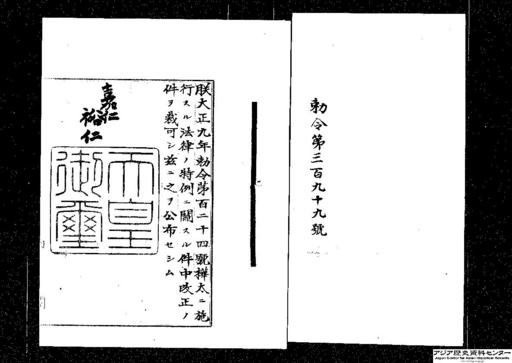 勅令第三百九十九號
朕大正九年勅令第百二十四號樺太ニ施
行スル法律ノ特例ニ關スル件中改正ノ
件ヲ裁可シ茲ニ之ヲ公布セシム
嘉仁
裕仁
天皇
御璽
アジア歴史資料センター
Japan Center for Asian Historical Records